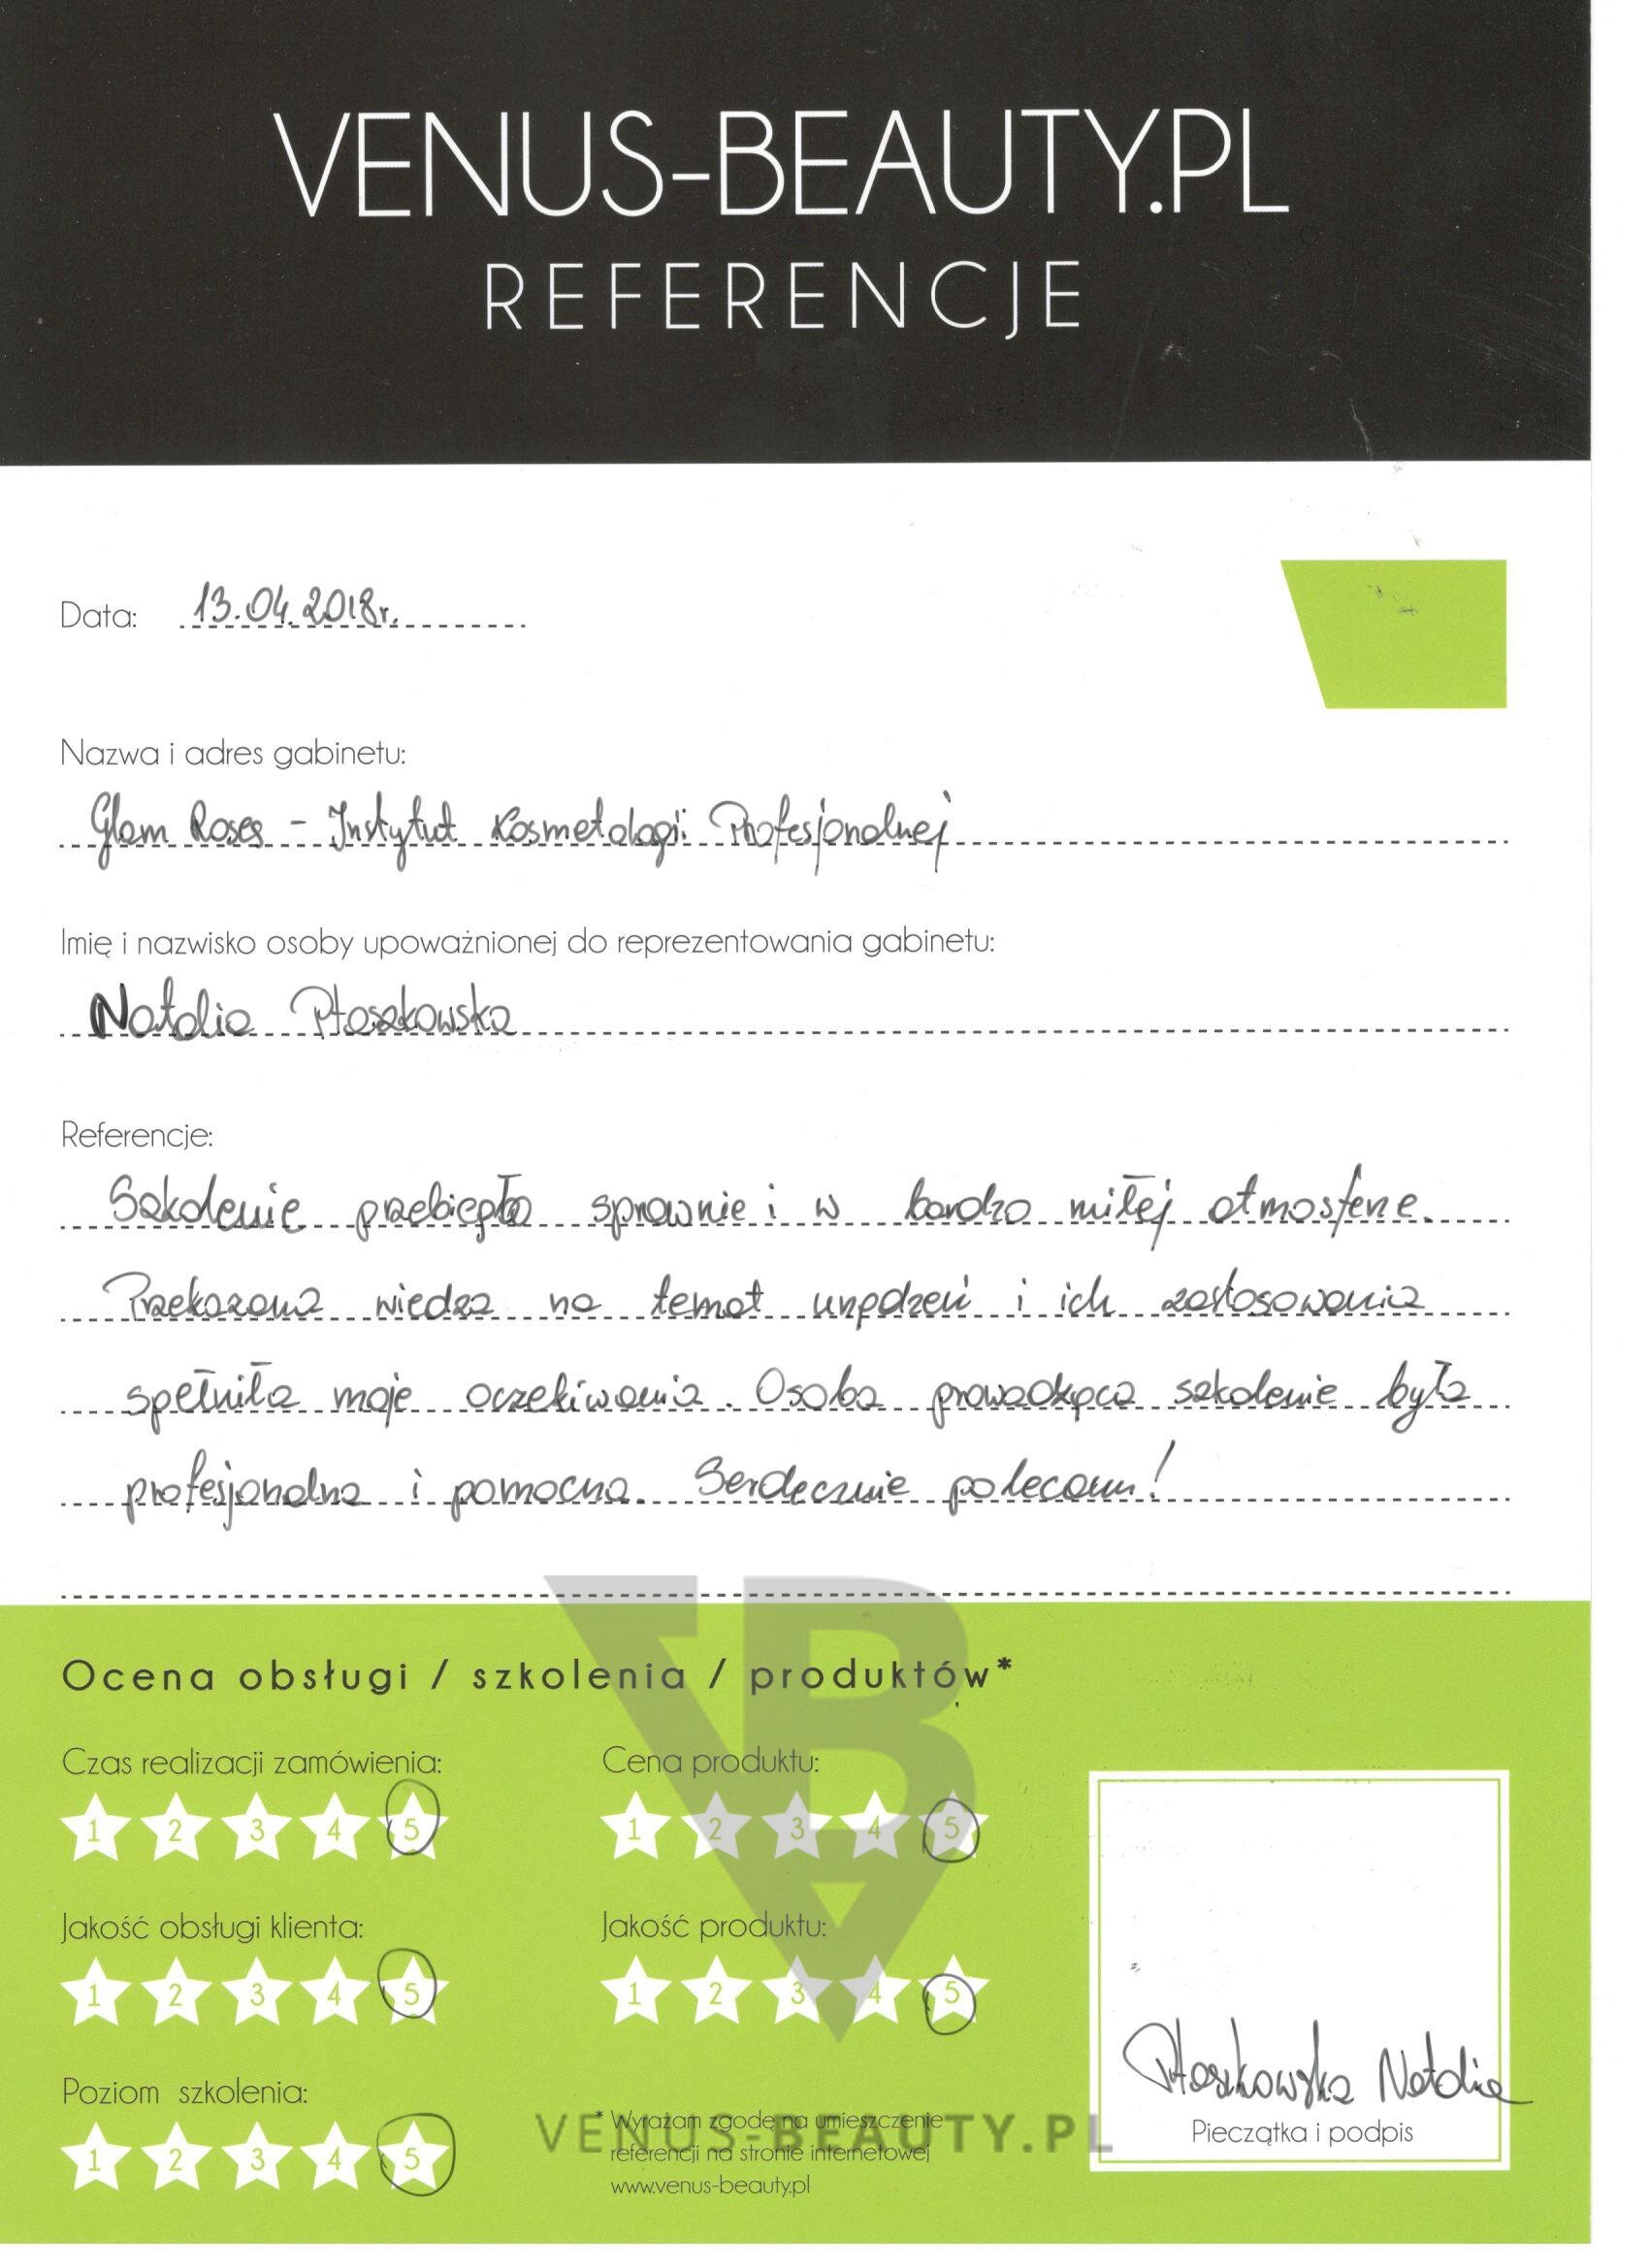 VENUS-BEAUTY.PL
REFERENCJE
Data: 13.04.2018r.
Nazwa i adres gabinetu:
Glam Roses - Instytut Kosmetologii Profesjonalnej
Imię i nazwisko osoby upoważnionej do reprezentowania gabinetu:
Natalia Ptaszkowska
Referencje:
Szkolenie przebiegło sprawnie i w bardzo miłej atmosferze.
Przekazana wiedza na temat urządzeń i ich zastosowania
spełniła moje oczekiwania. Osoba prowadząca szkolenie była
profesjonalna i pomocna. Serdecznie polecam!
Ocena obsługi / szkolenia / produktów*
Czas realizacji zamówienia:
1 2 3 4 5
Cena produktu:
1 2 3 4 5
Jakość obsługi klienta:
1 2 3 4 5
Jakość produktu:
1 2 3 4 5
Poziom szkolenia:
1 2 3 4 5
* Wyrażam zgodę na umieszczenie
referencji na stronie internetowej
www.venus-beauty.pl
Ptaszkowska Natalia
Pieczątka i podpis
VBA
VENUS-BEAUTY.PL